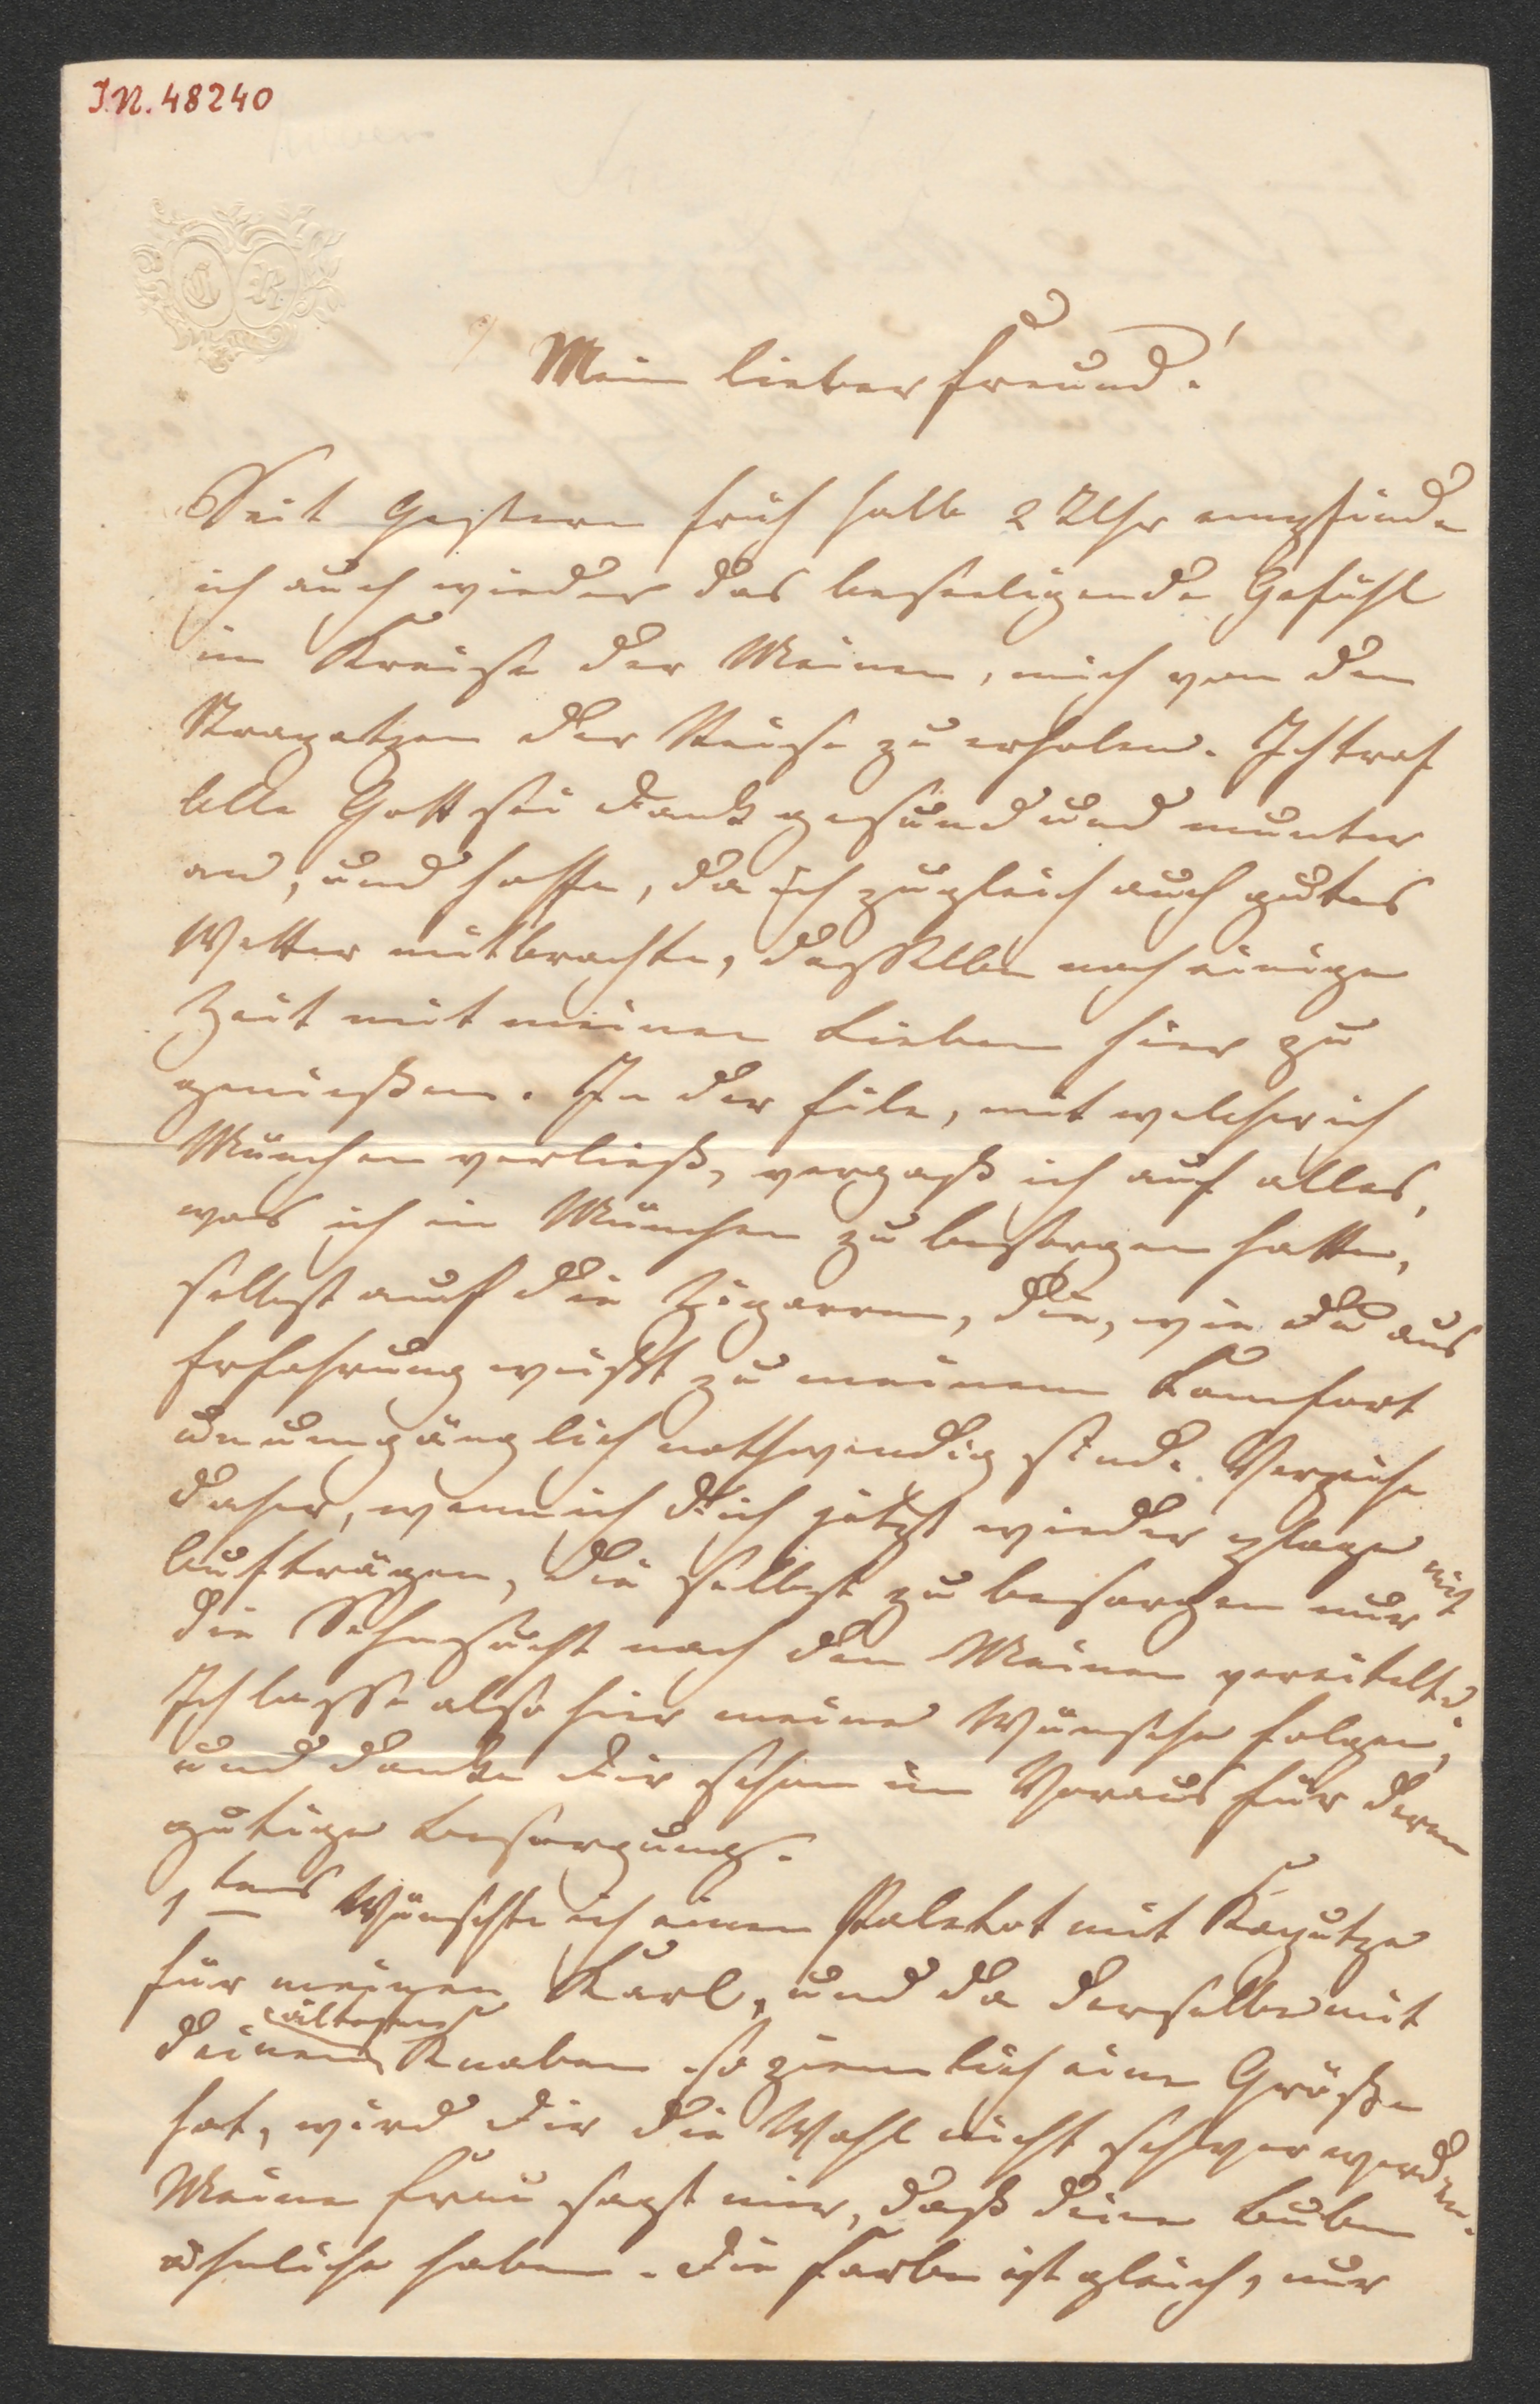 I.N. 48240
C R
Mein lieber Freund!
Seit gestern früh halb 2 Uhr empfinde
ich auch wieder das beseeligende Gefühl
im Kreise der Meinen, mich von den
Strapatzen der Reise zu erholen. Ich traf
alle Gott sei Dank gesund und munter
an, und hoffe, da ich zugleich auch gutes
Wetter mitbrachte, dasselbe noch einige
Zeit mit meinen Lieben hier zu
genießen. In der Eile, mit welcher ich
München verließ, vergaß ich auf alles,
was ich in München zu besorgen hatte,
selbst auf die Zigarren, die, wie Du aus
Erfahrung weißt zu meinem Comfort
unumgänglich nothwendig sind. Verzeihe
daher, wenn ich Dich jetzt wieder plage mit
Aufträgen, die selbst zu besorgen nur
die Sehnsucht nach den Meinen vereitelte.
Ich lasse also hier meine Wünsche folgen,
und danke Dir schon im Voraus für deren
gütige Besorgung.
1tens Wünschte ich einen Paletot mit Kaputze
für meinen Karl, und da derselbe mit
Deinem ältesten Knaben so ziemlich eine Größe
hat, wird Dir die Wahl nicht schwer werden.
Meine Frau sagt mir, daß Deine Buben
ähnliche haben. Die Farbe ist gleich, nur